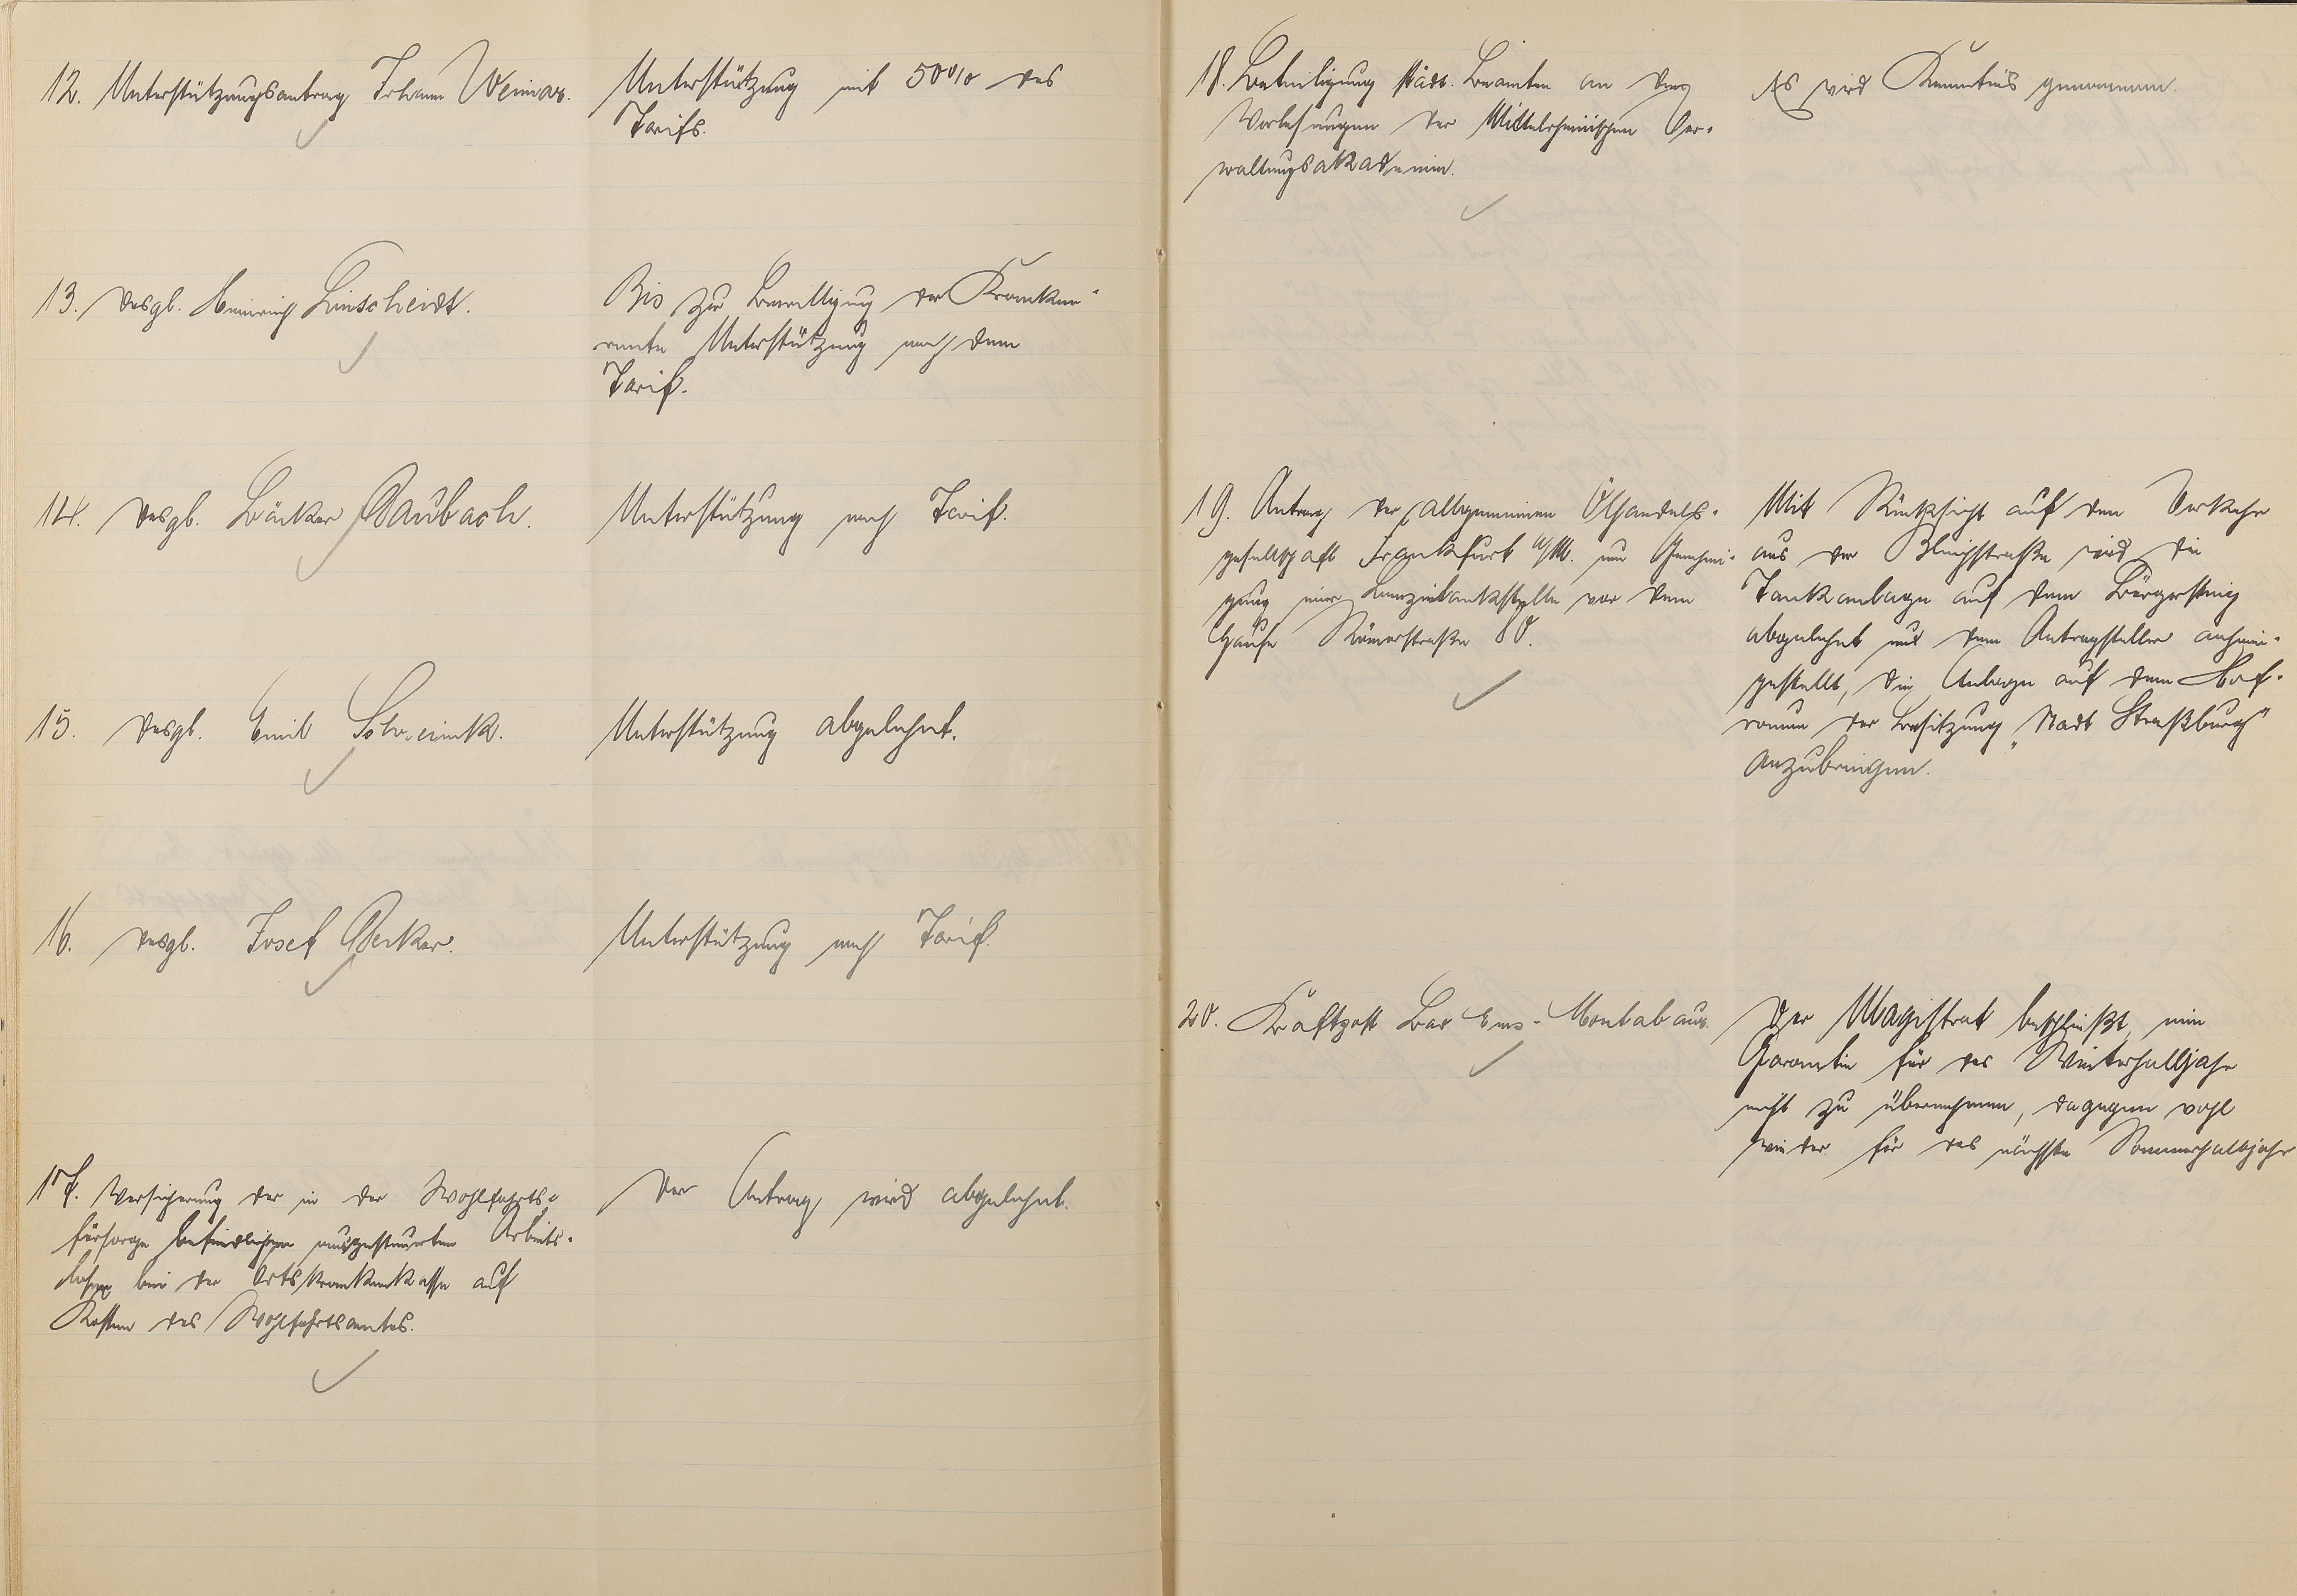 12. Unterstützungsantrag Johann Weimar.
Unterstützung mit 50% des
Tarifs.
13. desgl. Heinrich Linscheidt.
Bis zur Bewilligung der Kranken-
rente Unterstützung nach dem
Tarif.
14. desgl. Bäcker Daubach.
Unterstützung nach Tarif.
15. desgl. Emil
Unterstützung abgelehnt.
16. desgl. Josef Becker.
Unterstützung nach Tarif.
17. Versicherung der in der Wohlfahrts-
fürsorge befindlichen ausgesteuerten Arbeits-
losen bei der Ortskrankenkasse auf
Kosten des Wohlfahrtsamtes.
Der Antrag wird abgelehnt.
18. Beteiligung städt. Beamten an den
Vorlesungen der Mittelrheinischen Ver-
waltungsakademie.
Es wird Kenntnis genommen.
19. Antrag der allgemeinen Ölhandels-
gesellschaft Frankfurt a/M. um Genehmi-
gung einer Benzintankstelle vor dem
Hause Römerstraße 80.
Mit Rücksicht auf den Verkehr
aus der Bleichstraße wird die
Tankanlage auf dem Bürgersteig
abgelehnt und dem Antragsteller anheim-
gestellt, die Anlage auf dem Hof-
raum der Besitzung „Stadt Straßburg"
anzubringen.
20. Kraftpost Bad Ems-Montabaur.
Der Magistrat beschließt, eine
Garantie für das Winterhalbjahr
nicht zu übernehmen, dagegen wohl
wieder für das nächste Sommerhalbjahr